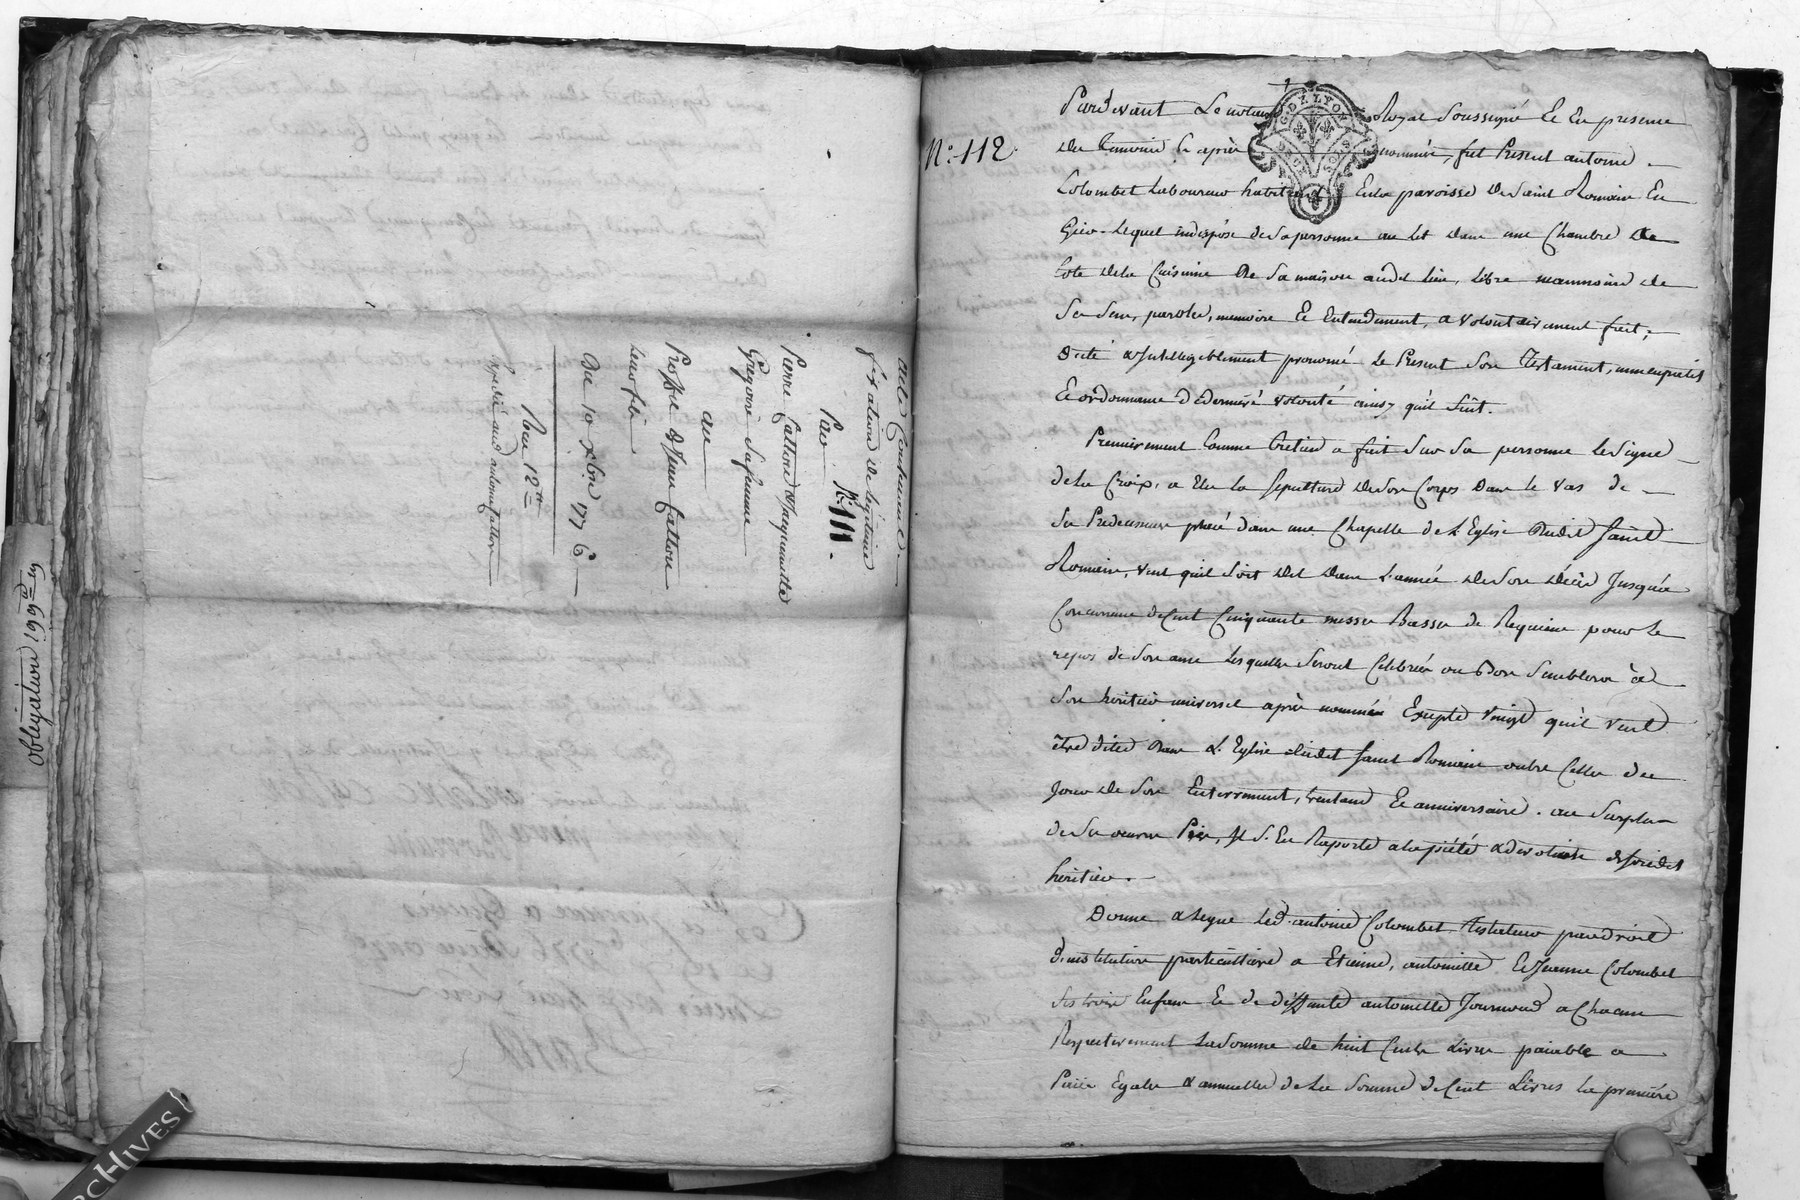 Obligation 199
acte Contenant
fixation de légitime
N° 111.
Par
Pierre Catton & Jacquemette
Gregoire Sa femme
au
Proffit d'Jean Catton
Leur fils
Du 10 Xbre 1776
Pour 12 tt
expedié aud antoine Catton
N.° 112.
Pardevant Le notaire Royal Soussigné Et En presence
des temoins Cy après nommés, fut Present antoine
Colombet Laboureur habitant En la paroisse de Saint Romain En
Gier Lequel indisposé de Sa personne au Lit dans une Chambre
Coté de la Cuisine de Sa maison aud Lieu, Libre neanmoins de
Ses Sens, parolle, memoire Et Entendement, a volontairement fait,
dicté & Intelligeblement prononcé Le Present Son Testament,
Et ordonnance de derniere volonté ainsy qu'il Suit.
Premierement Comme Cretien a fait Sur Sa personne le Signe
de la Croix, a Elu la Sepulture de Son Corps dans le vas de
Ses Predecesseurs placé dans une Chapelle de L'Eglise dudit Saint
Romain, veut quil Soit dit dans L'année de Son décès Jusqu'a
Concurrence de Cent Cinquante messes Basses de Requiem pour le
repos de Son ame Lesquelles Seront Celebrées ou Bon Semblera à
Son heritier universel après nommé Exepté vingt qu'il veut
être dites dans L'Eglise dudit Saint Romain outre Celles du
Jour de Son Enterrement, trentand Et anniversaire. au Surplus
de Ses œuvres Pies, Il S'En Raporte a la pieté & devotion de Sondit
heritier.
Donne & Legue Led. antoine Colombet Testateur par droit
d'institution particulliere a Etienne, antoinette Et Jeanne Colombet
Ses trois Enfans Et de deffunte antoinette Journoud a Chacun
Respectivement La Somme de huit Cents Livres paiable a
Paies Egales & annuelles de La Somme de Cent Livres La premiére
ARCHIVES